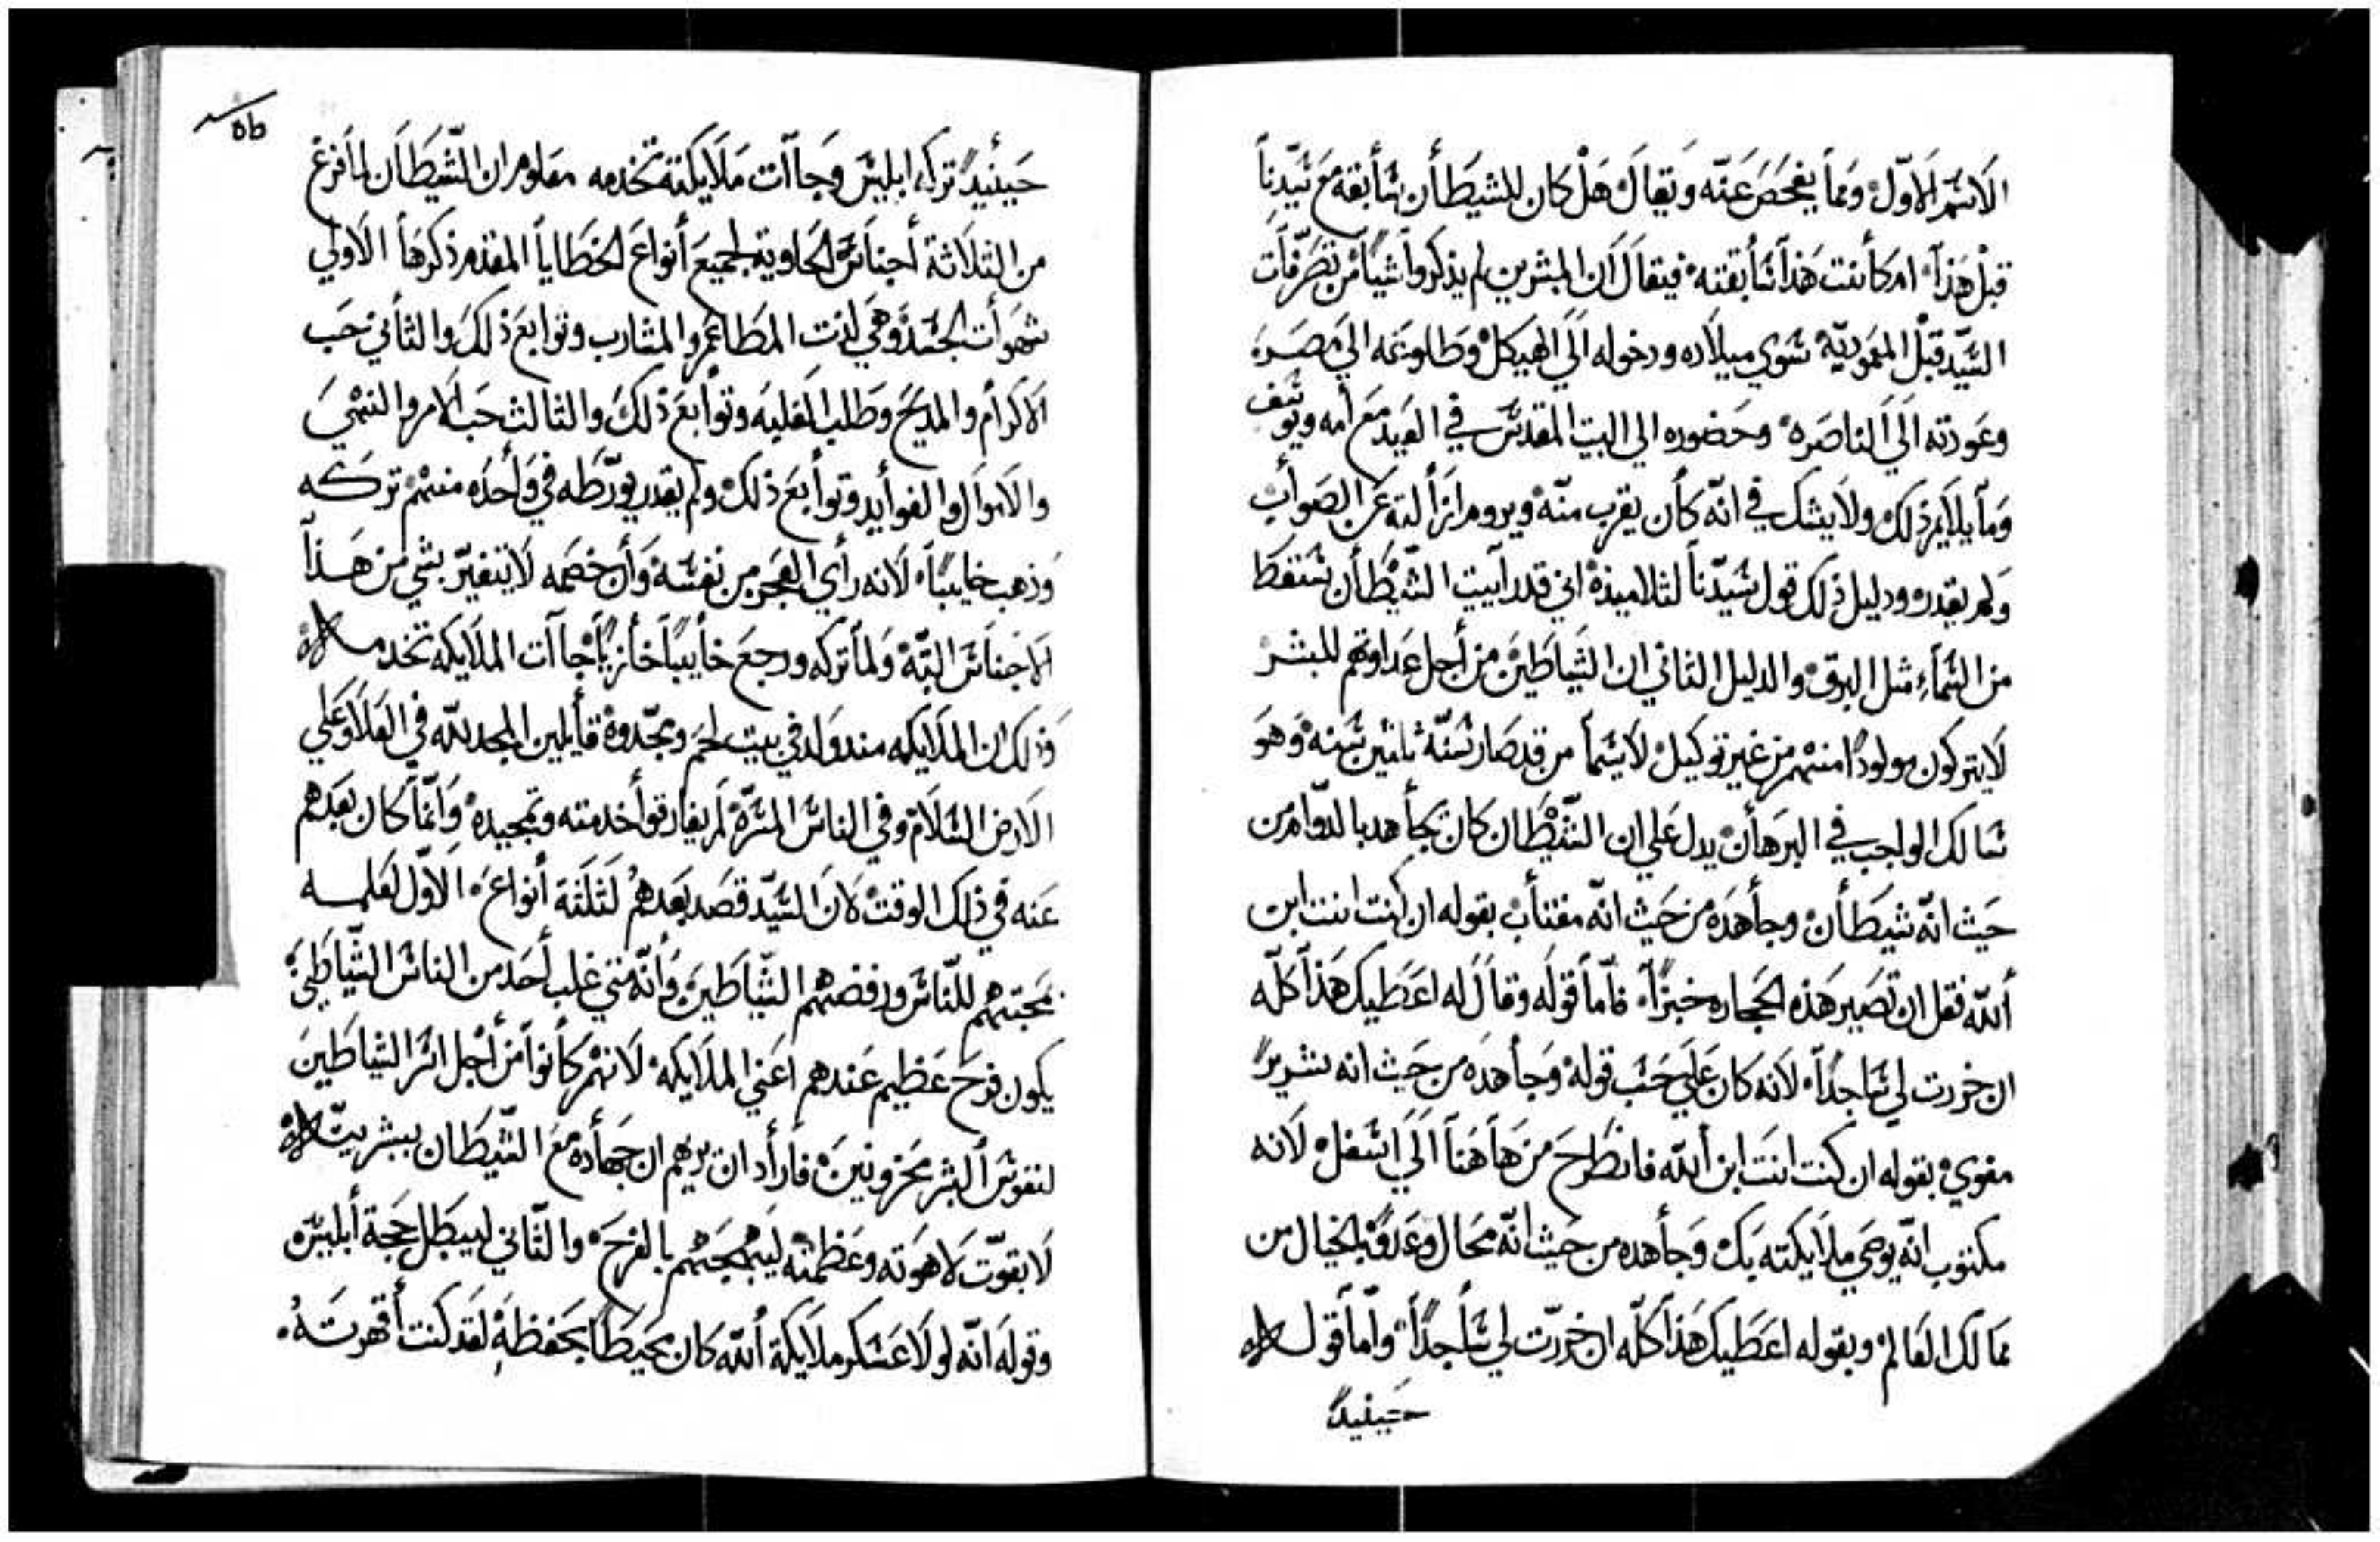 الاسم الاوّل وَمما يفحَصَ عَنّه وَيقالَ هَلْ كان للشيطَأن سَأبقه مَع سَيّدنا
قبْل هَذآ ام كأنت هَذآ سَأبقته فيتقاَل اَن المبشرين لم يذكروا شيًا من تصَرّفات
السَيّد قبْل المعَموديّة سَوي ميلاده ودخوله الَي الهيكل وَطلوعَه الي مصَر
وعَودته الَي الناصَره وحَضوره الي البيت المقدسَ في العَيد مَع أمه ويوسَف
وَمآ يلايم ذلك ولاَيشك في انّه كأن يقرب منّه ويروم ازألته عَن الصَوأب
وَلم يقدر ودليل ذلك قول سَيّدنآ لتلاميذه اني قد رآيت الشَيْطَأن سَقط
من السَمآءِ مثل البرق والدليل الثاني ان الشَيَاطَين من أجل عَداوتهم للبشر
لاَيتركون مولودًا منهم من غير توكيل لاَسَيمآ من قد صَار سَنّه ثلثين سَنه وَهوَ
سَالك الواجب في البرهأن يدل عَلي ان الشَيْطَان كان يجأهد بالدوّام من
حَيث انّه شيطَأن وجأهدَه من حَيث انّه مغتأب بقوله ان كنت انت ابن
أللّه فقل ان تصَير هَذه الحجاره خبزًا فأمآ قولَه وقاَل لَه اعَطَيك هَذآ كلّه
ان خررت لي سَاجدًا لاَنه كان عَلَي حَسَب قوله وَجأهدَه من حَيث انه شرير
مغوي بقوله ان كنت انتَ ابن أللّه فانطَرح من هَاهَنآ الَي اسَفل لاَنه
مكتوب انّه يوصَي ملاَيكته بك وَجأهده من حَيث انّه محَال وعَدوّ بالخيال من
ممالك العَالم وبقوله اعَطَيك هَذآ كلّه ان خررت لي سَأجدًا وأمآ قول
حَينيد
٥٥
حَينيد تركه ابليسَ وَجاآت مَلاَيكته تخدمه معَلوم ان الشَيطَان لمآ فرغ
من الثلاَثة أجنأسَ الحَاويه لجميعَ أنواع الخطَايا المقدم ذكرهَا الاَولي
شهوأت الجسَد وَهي لذت المطاعَم والمشارب وتوابعَ ذلكَ والثأني حَب
الاكرأم والمديح وَطلب الغلبه وتوأبع ذلكَ والثالث حَب الامر والنهْي
والاموآل والفوأيد وتوأبعَ ذلك ولم يقدر يورّطه في وَأحده منهم تركه
وَذهب خايبًا لاَنه رأي العَجز من نفسَه وَأن خصَمه لاَيتغيّر بشي من هَذآ
الاَجنأسَ البتّه وَلمآ تركه ورجعَ خأيبًا خأزيًا جاآت الملاَيكه تخدمه
وَذلك ان الملاَيكه مند ولد في بيت لحم ويمجّدوه قأيلين المجد للّه في العَلاَ وعَلي
الاَرض السَلاَم وفي الناسَ المسَرّه لم يفارقوأ خدمته وتمجيده وَانّمآ كان بعَدهم
عَنه في ذلك الوقت لاَن السَيّد قصَد بعَدهُم لثلَثة أنواعَ الاَوّل لعَلمه
بمحَبتهم للنّاسَ ورفضهم الشَيّاطَين وَأنّه متي غلب أحَد من الناسَ الشَيّاطَين
يكون فرح عَظيم عَندهم أعَني الملاَيكه لاَنهم كأنوآ من أجل اسَر الشياطَين
لنفوسَ البشر محَزونين فأرأد ان يريهم ان جهأده معَ الشَيطَان ببشريته
لاَ بقوّت لاَهوَته وعَظمته ليبهجهم بالفرَح والثّاني ليبطَل حَجة أبليسَ
وقولَه انّه لولاَ عَسَكر ملاَيكة أللّه كان محَيطًا بحَفظهِ لقَد كنت أقهرتهُ